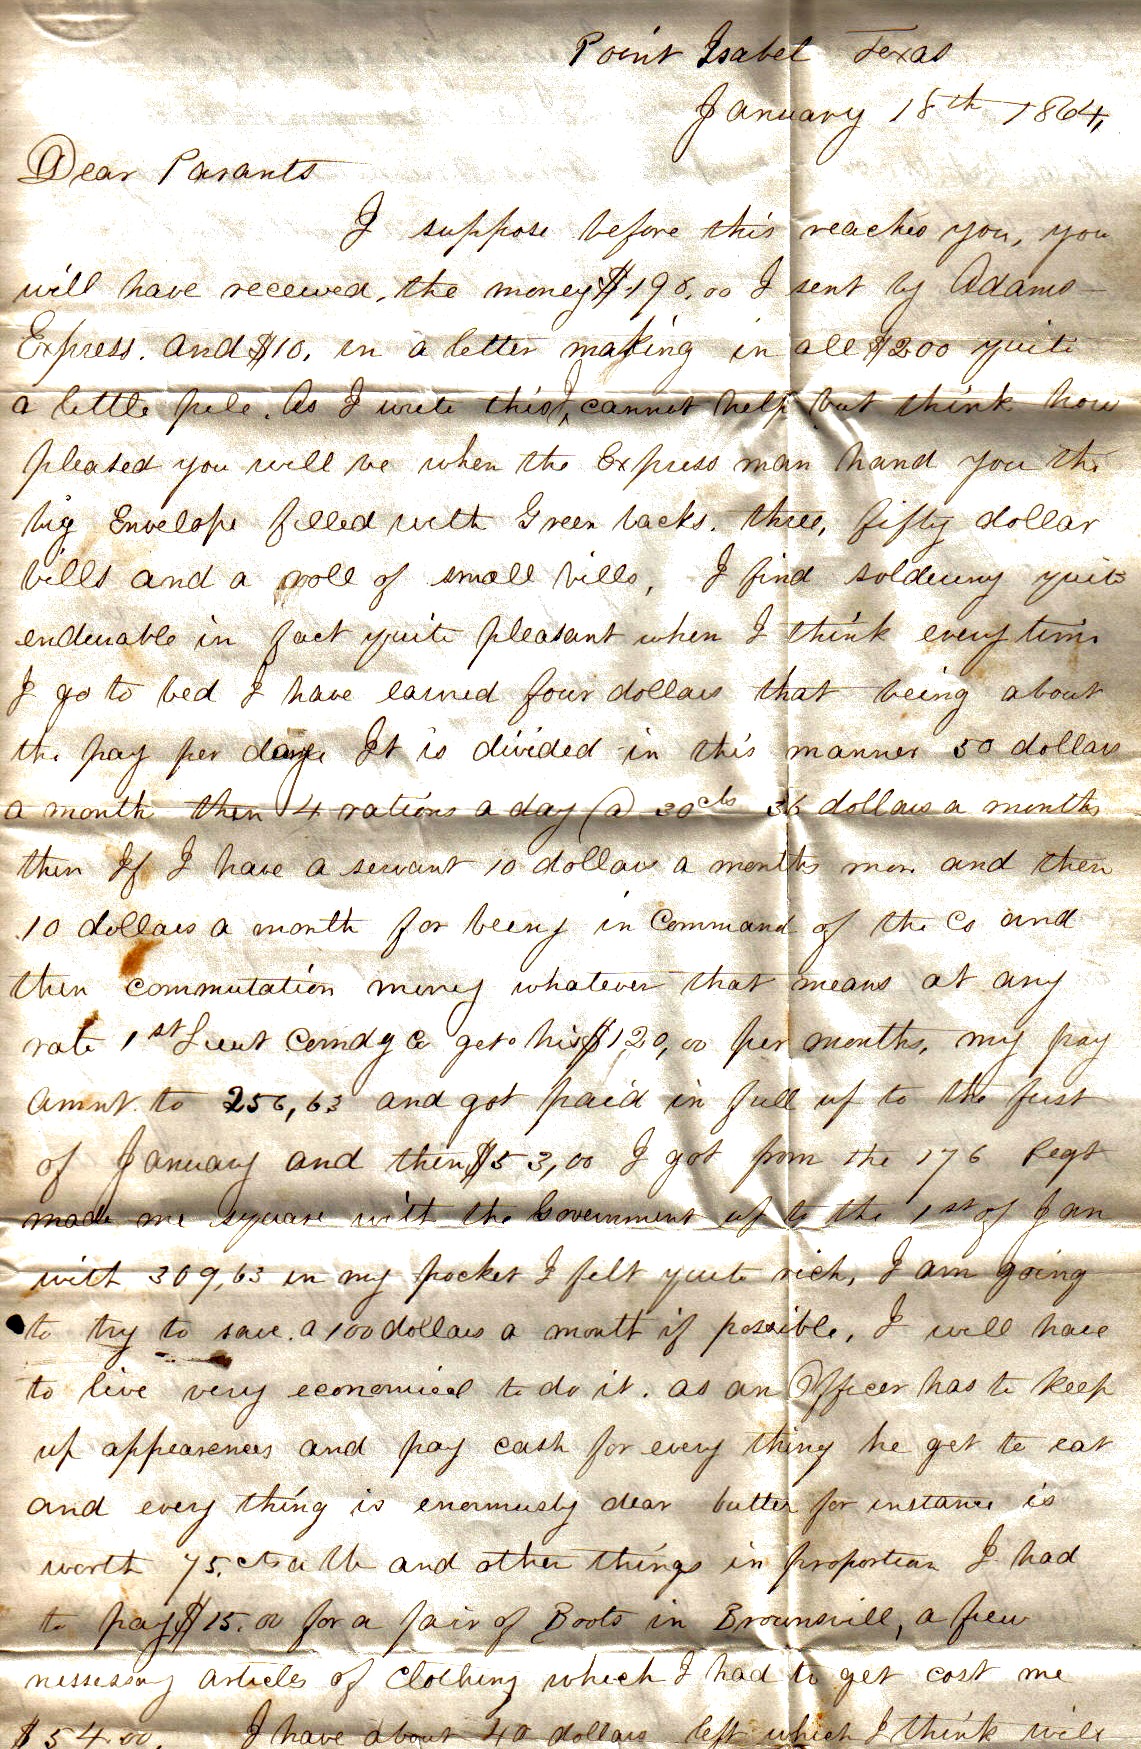 Point Isabel Texas
January 18th 1864,
Dear Parants
I suppose before this reaches you, you
will have received, the money $190.00 I sent by Adams
Express. And $10, in a letter making in all $200 quite
a little pile. As I write this I cannot help but think how
pleased you will be when the Express man hand you the
big Envelope filled with Green backs. three, fifty dollar
bills and a roll of small bills, I find soldiering quite
endurable in fact quite pleasant when I think every time
I go to bed I have earned four dollars that being about
the pay per day It is divided in this manner 50 dollars
a month then 4 rations a day @ 30cts 36 dollars a months
then If I have a servant 10 dollars a months more and then
10 dollars a month for being in Command of the Co and
then commutation money whatever that means at any
rate 1st Lieut Comdg Co gets his $120,00 per months, my pay
amnt. to 256,63 and got paid in full up to the first
of January and then $53,00 I got from the 176 Regt
made me square with the Government up to the 1st of Jan
with 309,63 in my pocket I felt quite rich, I am going
to try to save a 100 dollars a month if possible, I will have
to live very economical to do it. as an Officer has to keep
up appearences and pay cash for every thing he get to eat
and every thing is enormusly dear butter for instance is
worth 75. cts a lb and other things in proportion I had
to pay $15.00 for a pair of Boots in Brownsvill, a few
nessessary articles of Clothing which I had to get cost me
$54.00. I have about 40 dollars left which I think will